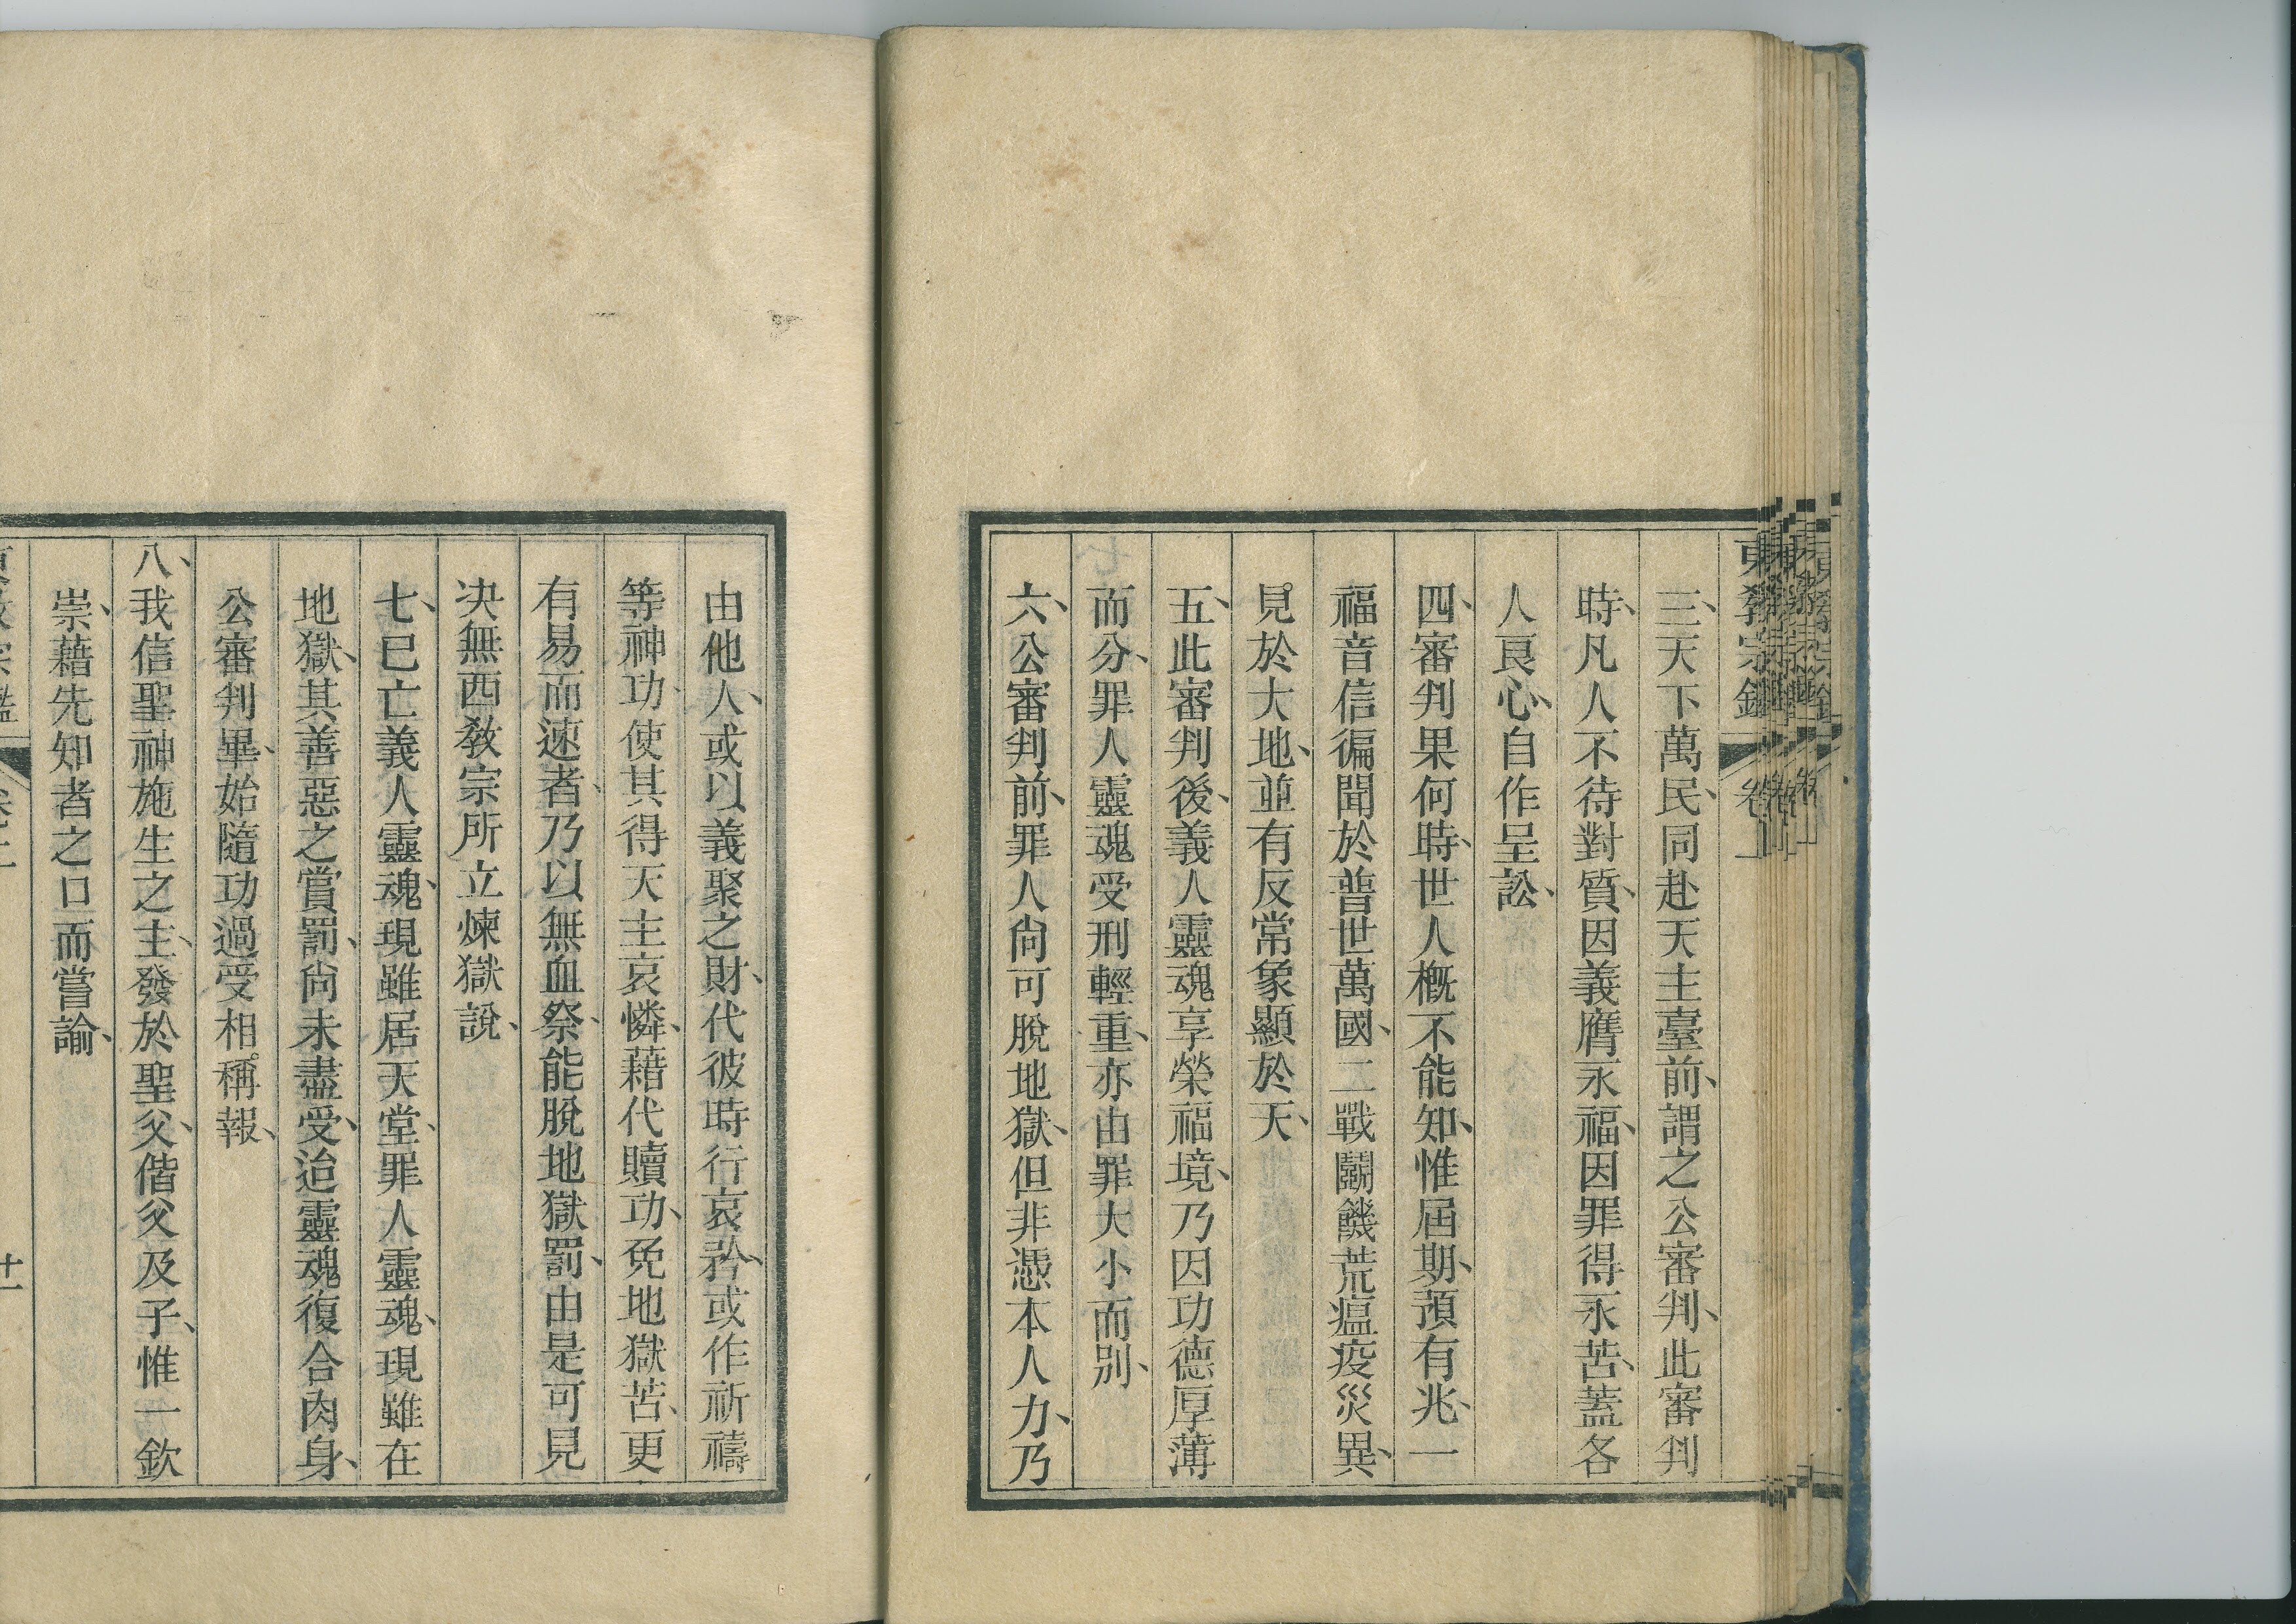 東教宗鑑 卷二
三、天下萬民、同赴天主臺前、謂之公審判、此審判
時、凡人不待對質、因義膺永福、因罪得永苦、蓋各
人良心、自作呈訟、
四、審判果何時、世人概不能知、惟屆期、預有兆、一
福音信徧聞於普世萬國、二戰鬬饑荒瘟疫災異、
見於大地、並有反常象顯於天、
五、此審判後、義人靈魂享榮福境、乃因功德厚薄
而分、罪人靈魂受刑輕重、亦由罪大小而别、
六、公審判前、罪人尙可脫地獄、但非憑本人力、乃
由他人、或以義聚之財、代彼時行哀矜、或作祈禱
等神功、使其得天主哀憐、藉代贖功、免地獄苦、更
有易而速者、乃以無血祭、能脫地獄罰、由是可見
决無西教宗所立煉獄說、
七、已亡義人靈魂、現雖居天堂、罪人靈魂、現雖在
地獄、其善惡之賞罰、尙未盡受、迨靈魂復合肉身、
公審判畢、始隨功過受相稱報、
八、我信聖神施生之主、發於聖父、偕父及子、惟一欽
崇、藉先知者之口而嘗諭、
東教宗鑑 卷二 十一